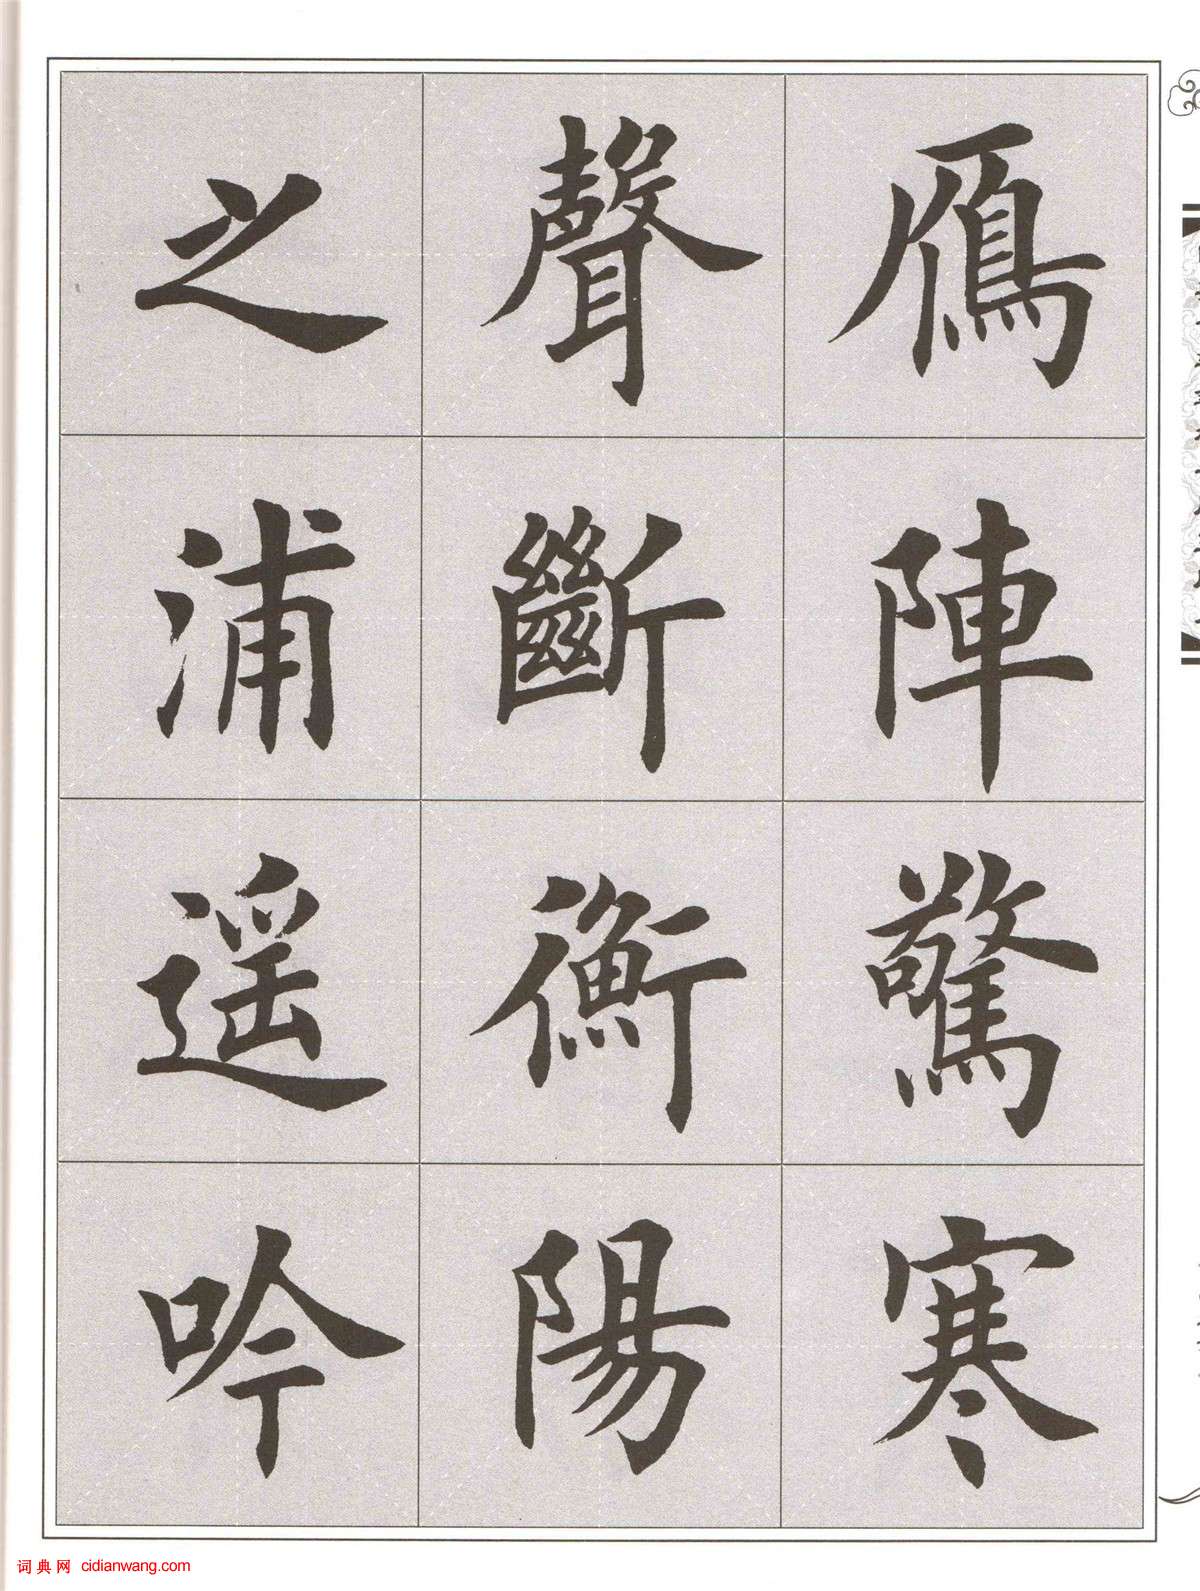 鴈陣驚寒
聲斷衡陽
之浦遥吟
词典网 cidianwang.com